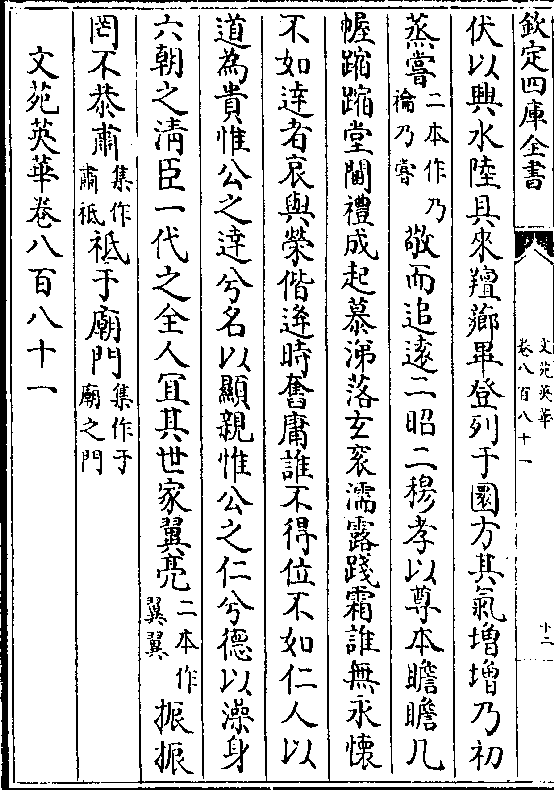 欽定四庫全書
文苑英華
卷八百八十一
十二
伏以興水陸具來羶薌畢登列于圜方其氣增增乃初
蒸嘗二本作乃禴乃嘗敬而追逺二昭二穆孝以尊本瞻瞻几
幄蹜蹜堂閫禮成起慕涕落玄衮濡露踐霜誰無永懷
不如達者哀與榮偕逢時奮庸誰不得位不如仁人以
道為貴惟公之達兮名以顯親惟公之仁兮德以澡身
六朝之清臣一代之全人宜其世家翼亮二本作翼翼振振
罔不恭肅集作肅祗祗于廟門集作于廟之門
文苑英華卷八百八十一